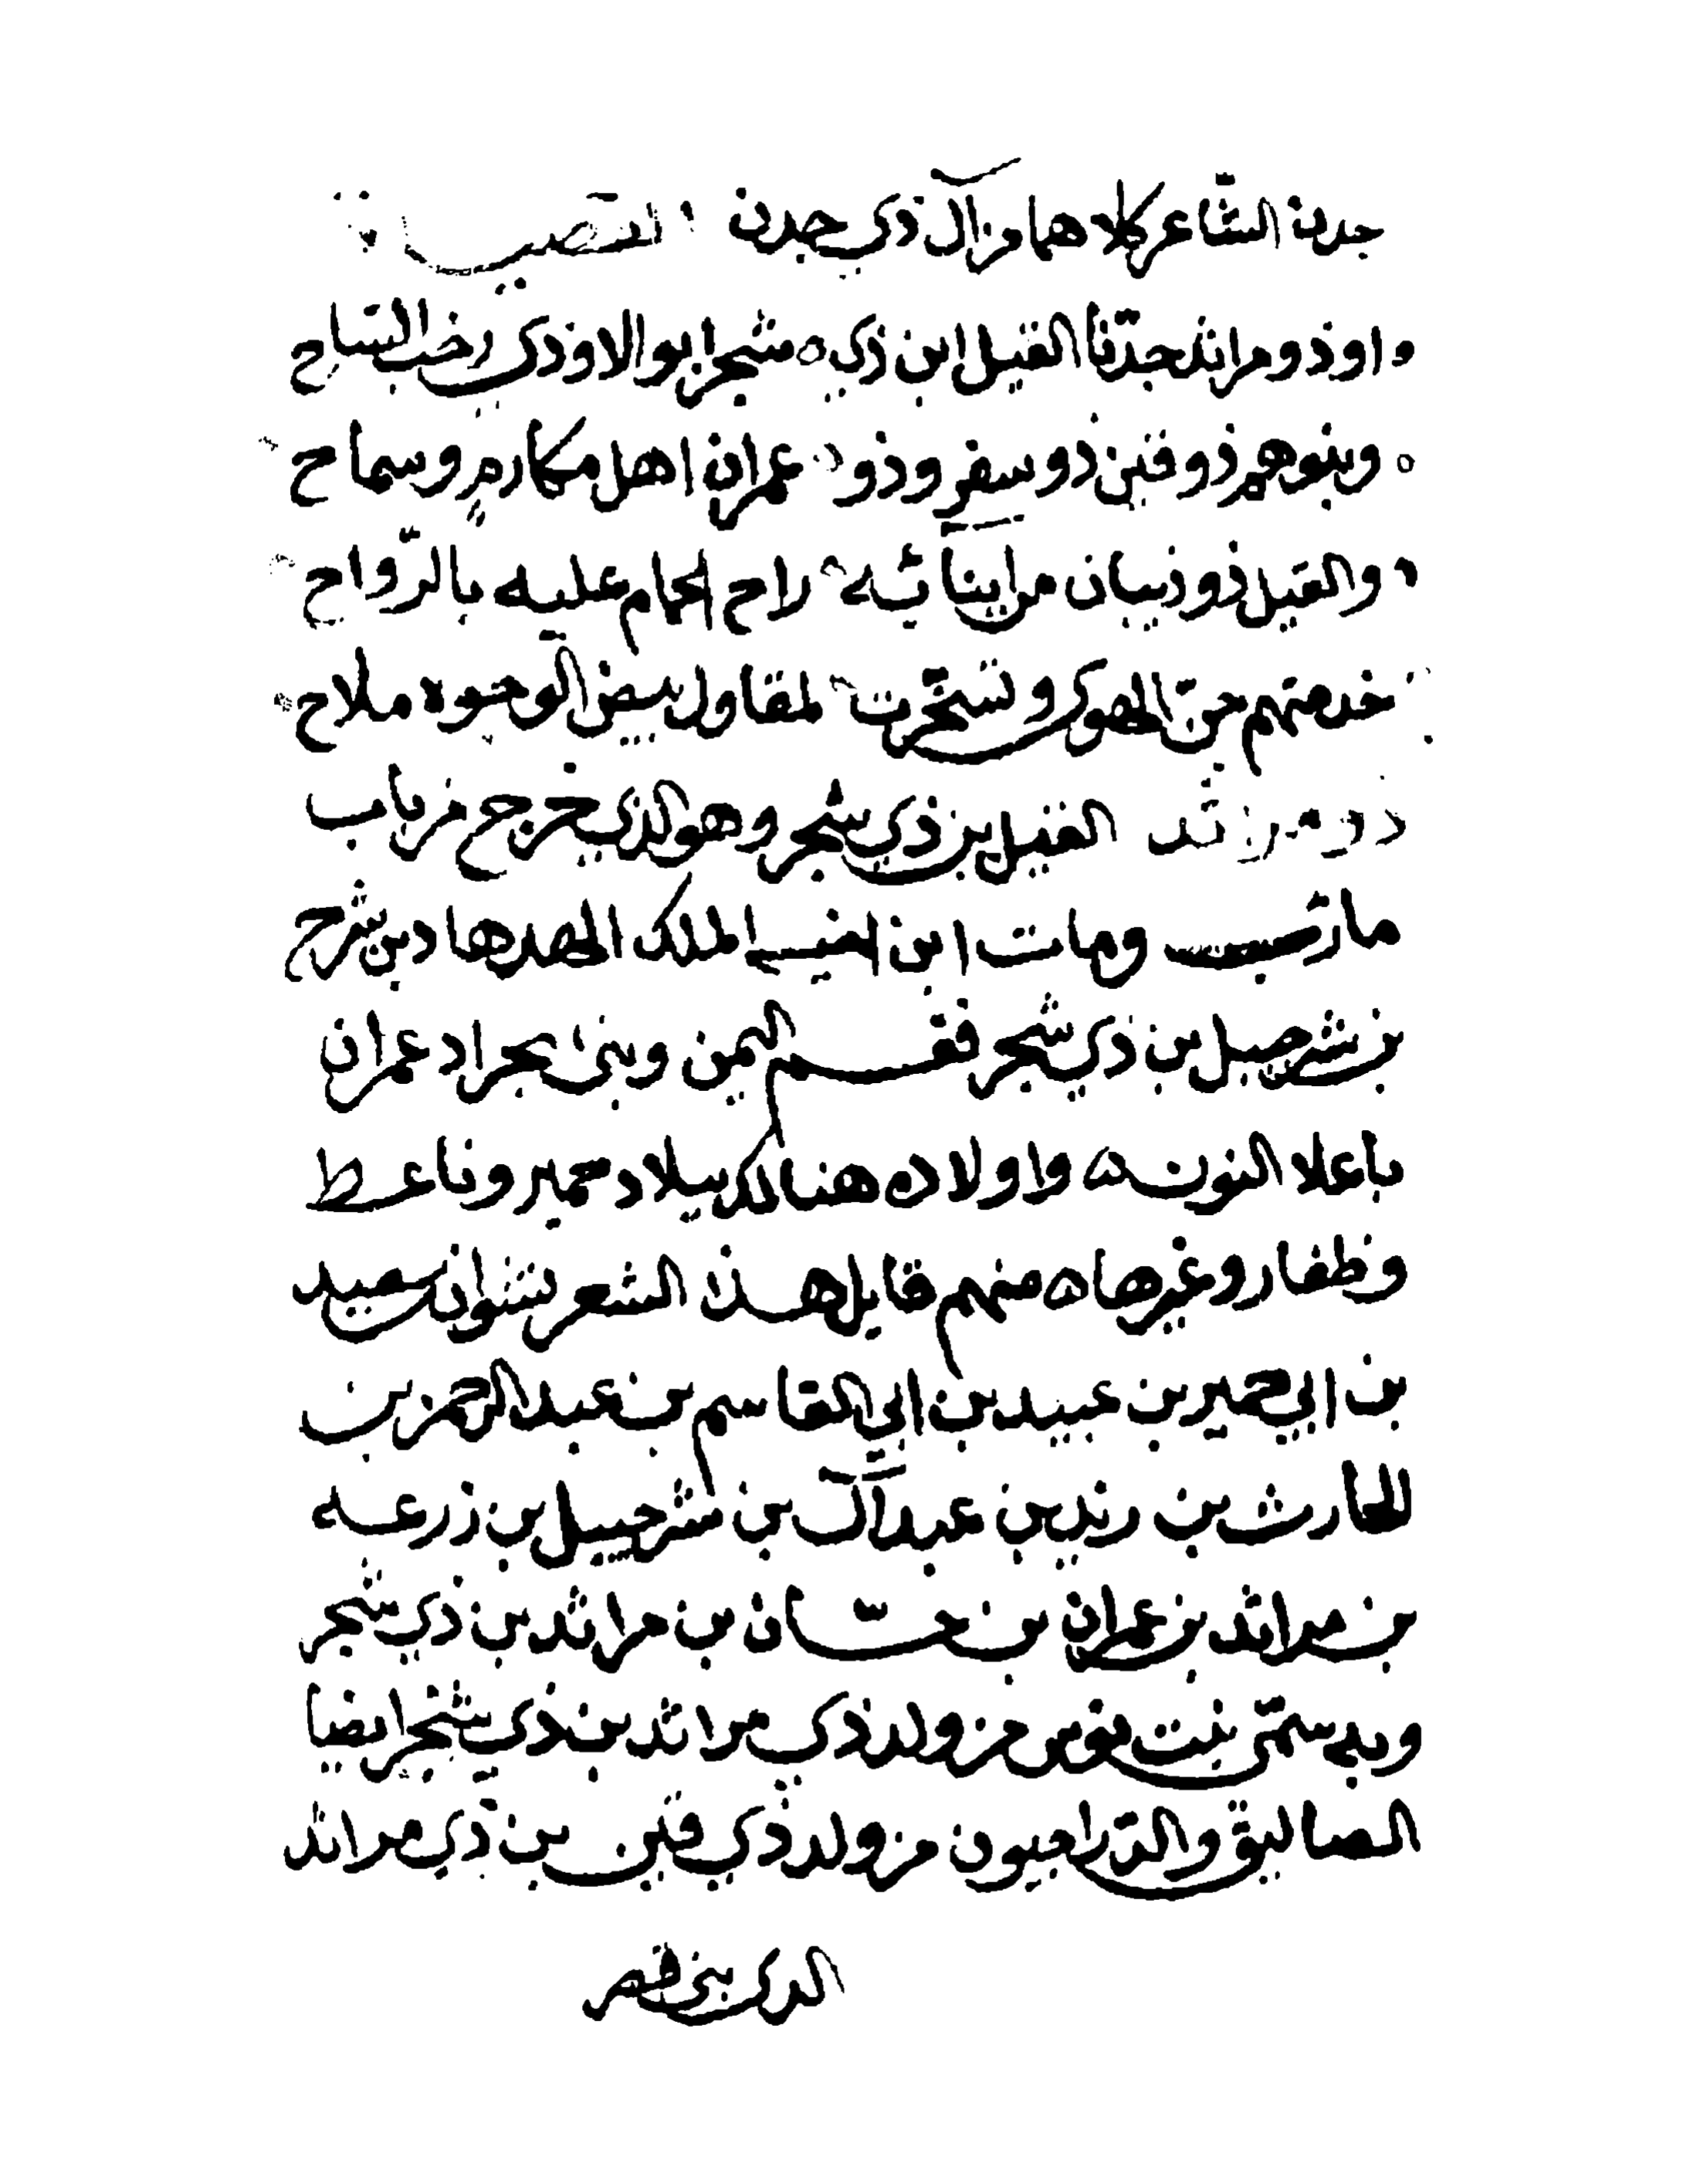 جدن الشاعر كلاهما من آل ذي جدن القصيب
او ذو مراثد جدنا القيل ابن ذي شجر ابو الاوذى رخب الساح
وبنوهم ذو قين ذو سفر وذو عمران اهل مكارم وسماح
والقيل ذو ذيبان من ابنائه راح الحمام عليه بالرواح
خدمتهم جن الهوى وتسخرت لمقاول بيض الوجوه ملاح
ذو مراثد القيل بن ذي شجر وهو الذي خرج من باب
مارب ومات ابن اخيه الملك الهدهاد بن شرح
بن شرحبيل بن ذي شجر فقسم اليمن وبنى عمران
باعلا النون واولاده هنالك ببلاد حمير وناعط
وظفار وغيرها منهم قايل هذا الشعر نشوان بن سعيد
بن ابي حمير بن عبيد بن ابي القاسم بن عبد الرحمن بن
الحارث بن زيد بن عبد آل بن شرحبيل بن زرعه
بن مراثد بن عمران بن حسان بن مراثد بن ذي شجر
بنت نوس من ولد ذي مراثد بن ذي شجر ايضا
الصاليق من ولد ذي قين بن ذي مراثد
الذى بنى قصر